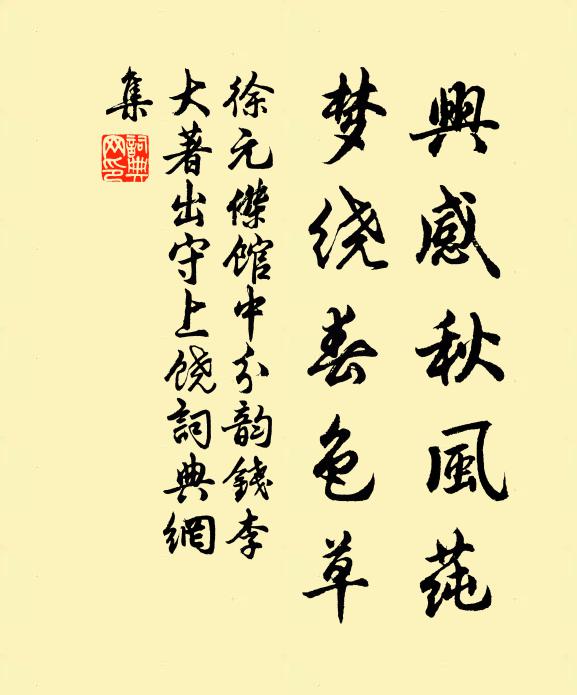 興感秋風蒓
梦绕春色草
徐元傑館中分韵錢李
大著出守上饶詞典網
集
詞典網印